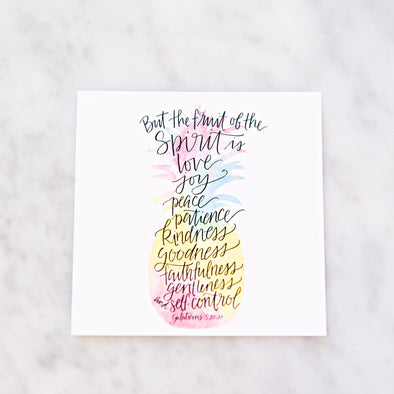 But the fruit of the
Spirit is
love
joy
peace
patience
kindness
goodness
faithfulness
gentleness
and self-control
Galatians 5:22-23